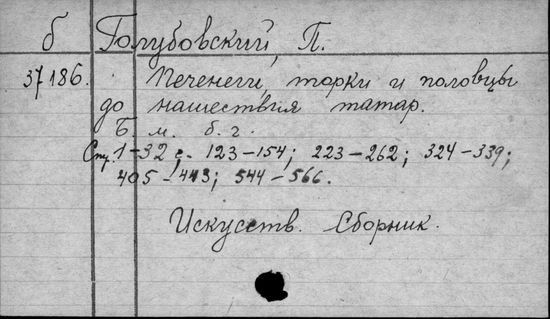 б Голубовский, П.
37186. Печенеги, торки и половцы
до нашествия татар.
Б. м. б. г.
Стр. 1-32 с. 123-154; 223-262; 324-339;
405-443; 544-566.
Искусств. Сборник.